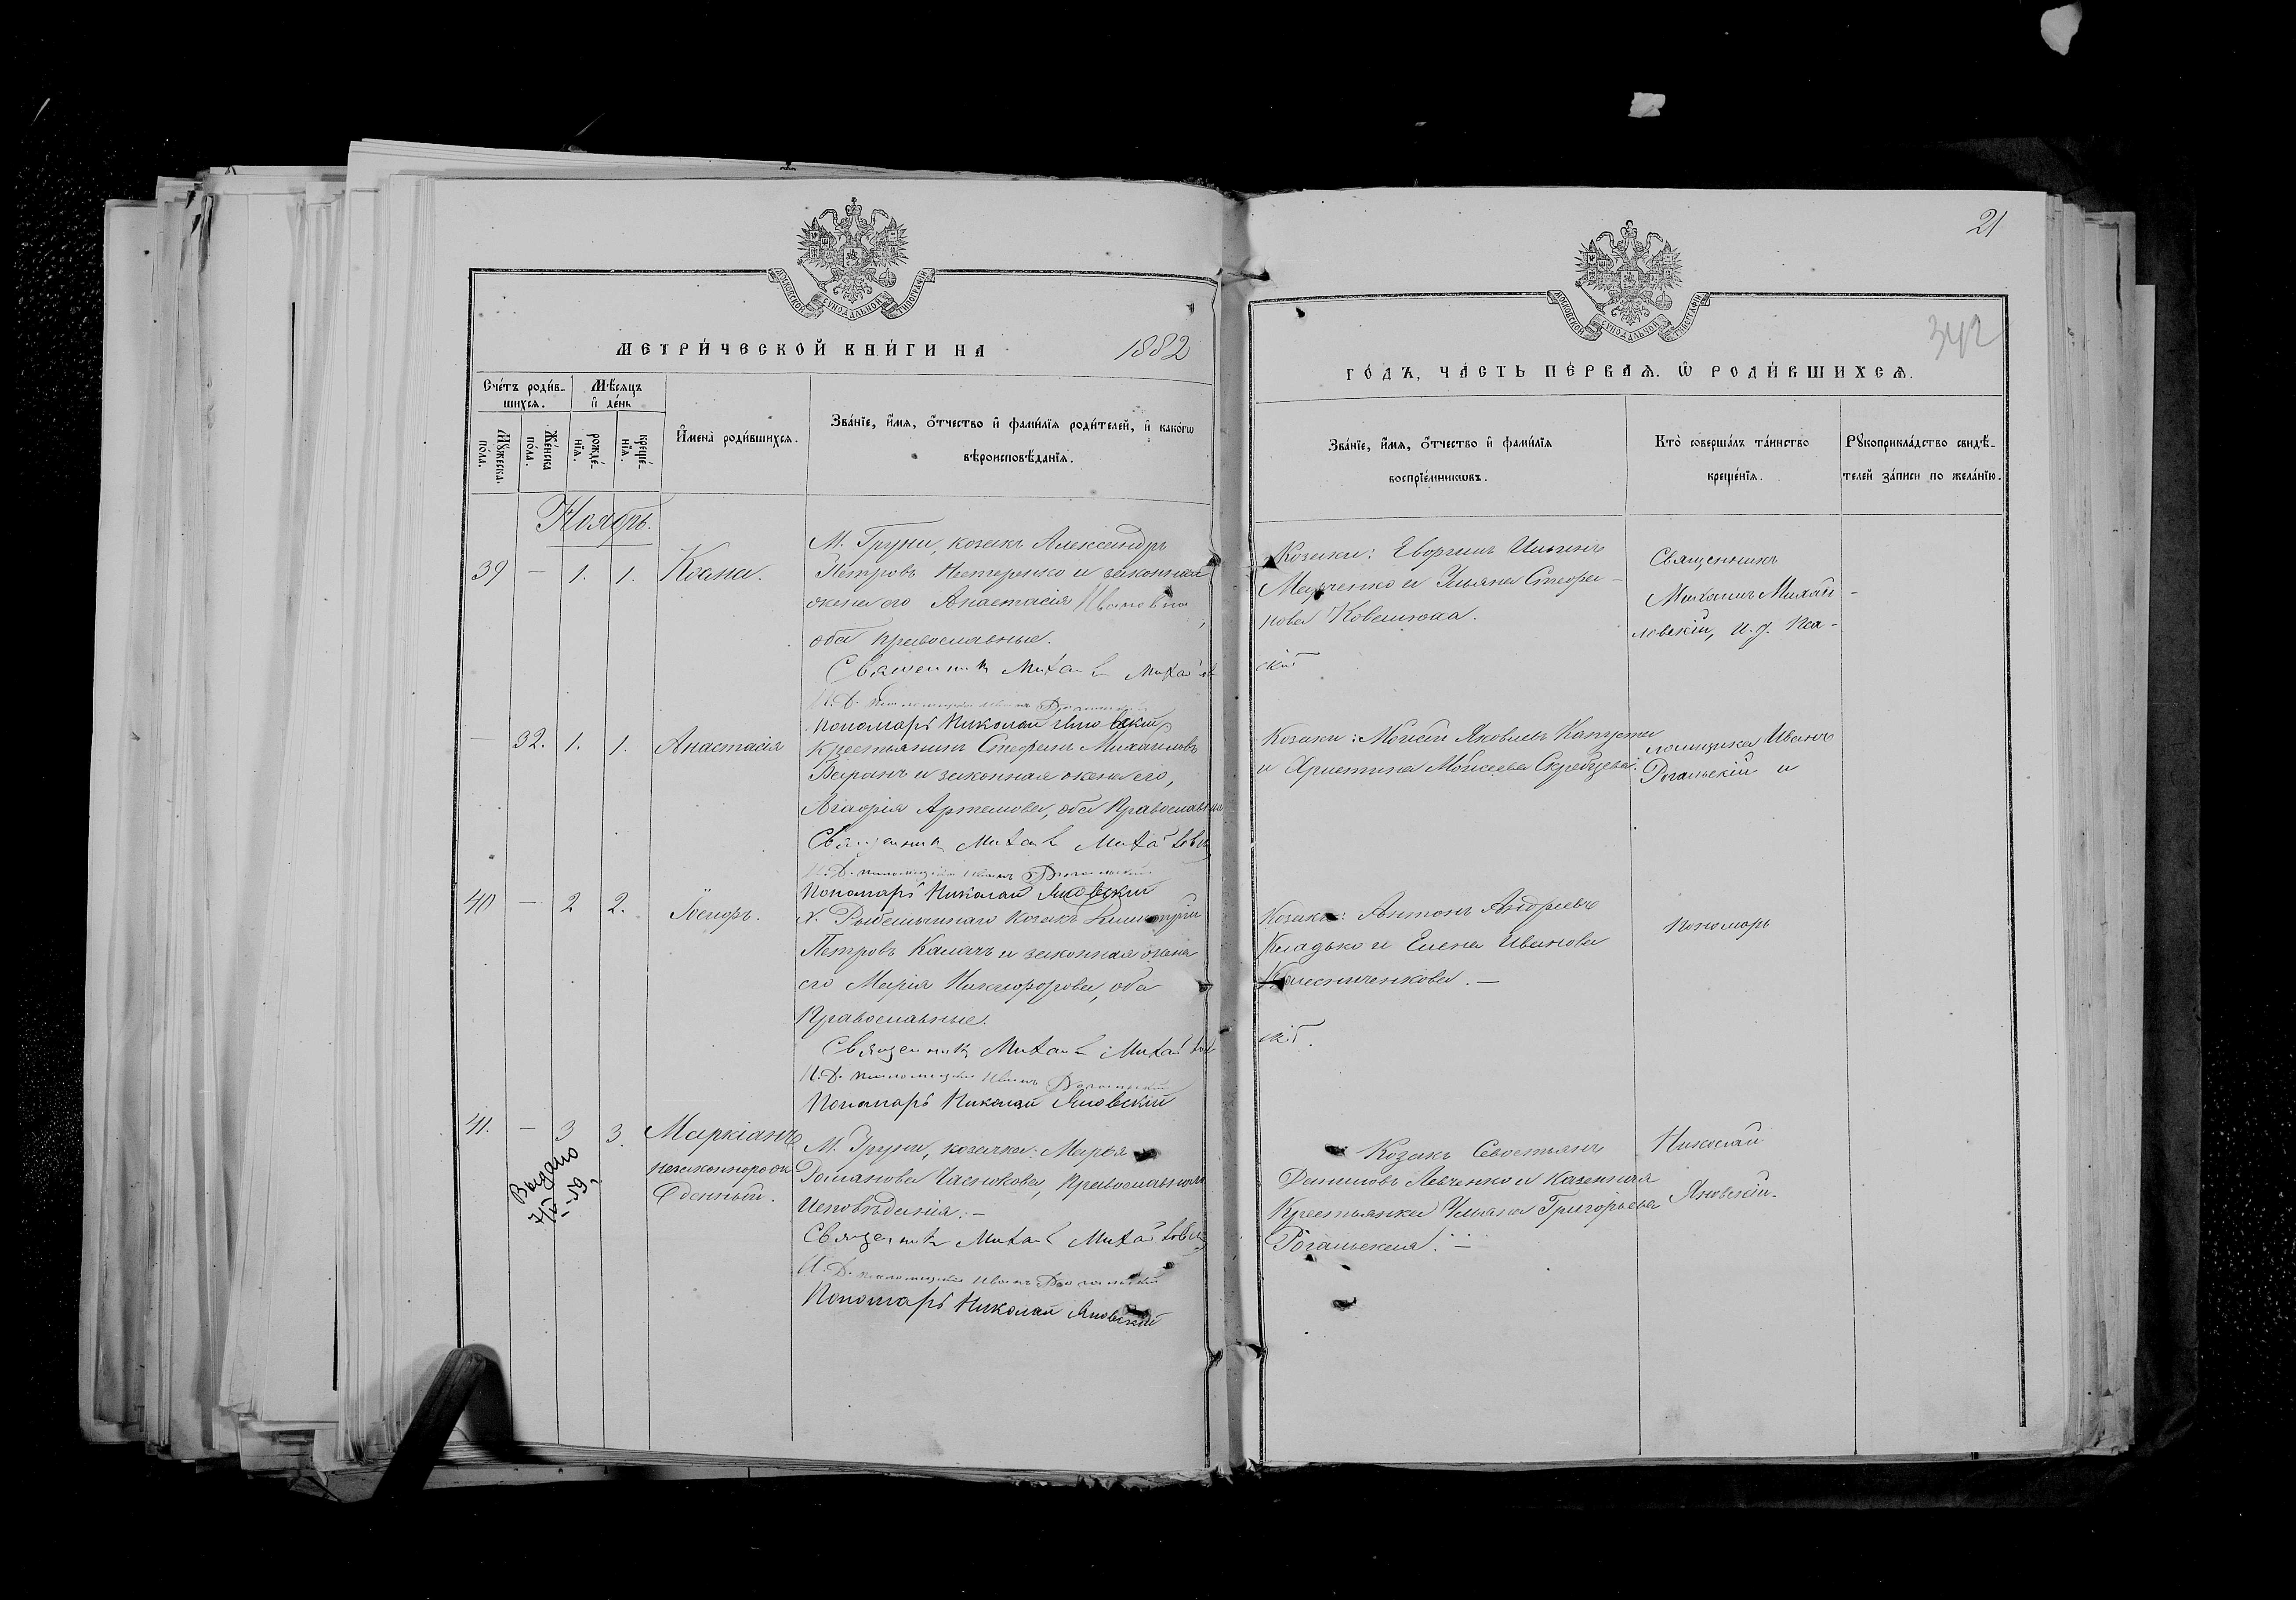 21
342
МОСКОВСКОЙ СѴНОДАЛЬНОЙ ТИПОГРАФІИ
МОСКОВСКОЙ СѴНОДАЛЬНОЙ ТИПОГРАФІИ
МЕТРИ́ЧЕСКОЙ КНИ́ГИ НА 1882
ГО́ДЪ, ЧА́СТЬ ПЕ́РВАЯ. Ѿ РОДИ́ВШИХСЯ.
Сче́тъ роди́в-
шихся.
Мѣ́сяцъ
и҆ де́нь
Мꙋ́жеска.
по́ла.
Же́нска
по́ла.
рожде́-
нїя.
креще́-
нїя.
И҆мена̀ роди́вшихся.
Зва́нїе, и҆́мя, ѻ҆́тчество и҆ фами́лїя роди́телей, и҆ како́гѡ
вѣроисповѣ́данїя.
Зва́нїе, и҆́мя, ѻ҆́тчество и҆ фами́лїя
воспрїе́мникѡвъ.
Кто̀ соверша́лъ та́инство
креще́нїя.
Рꙋкоприкла́дство свидѣ́-
телей за́писи по жела́нїю.
Ноябрь.
39 — 1. 1. Косма.
М. Груни, козакъ Александръ
Петровъ Нестеренко и законная
жена его Анастасія Ивановна,
оба православные.
Священникъ Михаилъ Михайловскій
И. Д. псаломщика Иванъ Рогальскій
Пономарь Николай Яновскій
Козаки: Георгий Ильинъ
Марченко и Ульяна Стефа-
нова
Священникъ
Михаилъ Михай-
ловскій, и. д. Пса-
— 32. 1. 1. Анастасія
Крестьянинъ Стефанъ Михаиловъ
и законная жена его,
Агафія Артемова, оба Православные
Священникъ Михаилъ Михайловскій
И. Д. псаломщика Иванъ Рогальскій
Пономарь Николай Яновскій
Козаки: Мойсей Яковлевъ Капуста
и Христина Мойсеева
ломщика Иванъ
Рогальскій и
40 — 2 2.
Х. козакъ Димитрій
Петровъ Калачъ и законная жена
его Марія Никифорова, оба
Православные.
Священникъ Михаилъ Михайловскій
И. Д. псаломщика Иванъ Рогальскій
Пономарь Николай Яновскій
Козаки: Антонъ Андреевъ
Кладько и Елена Иванова
Колесниченкова. —
пономарь
41. — 3 3. Маркіанъ
незаконнорож
денный.
Выдано
7/V-59
М. Груни, козачка: Марья
Романова Часникова, православнаго
исповѣданія. —
Священникъ Михаилъ Михайловскій
И. Д. псаломщика Иванъ Рогальскій
Пономарь Николай Яновскій
Козакъ Севастьянъ
Даниловъ Левченко и казенная
Крестьянка Ульяна Григорьева
Рогальская. —
Николай
Яновскій.